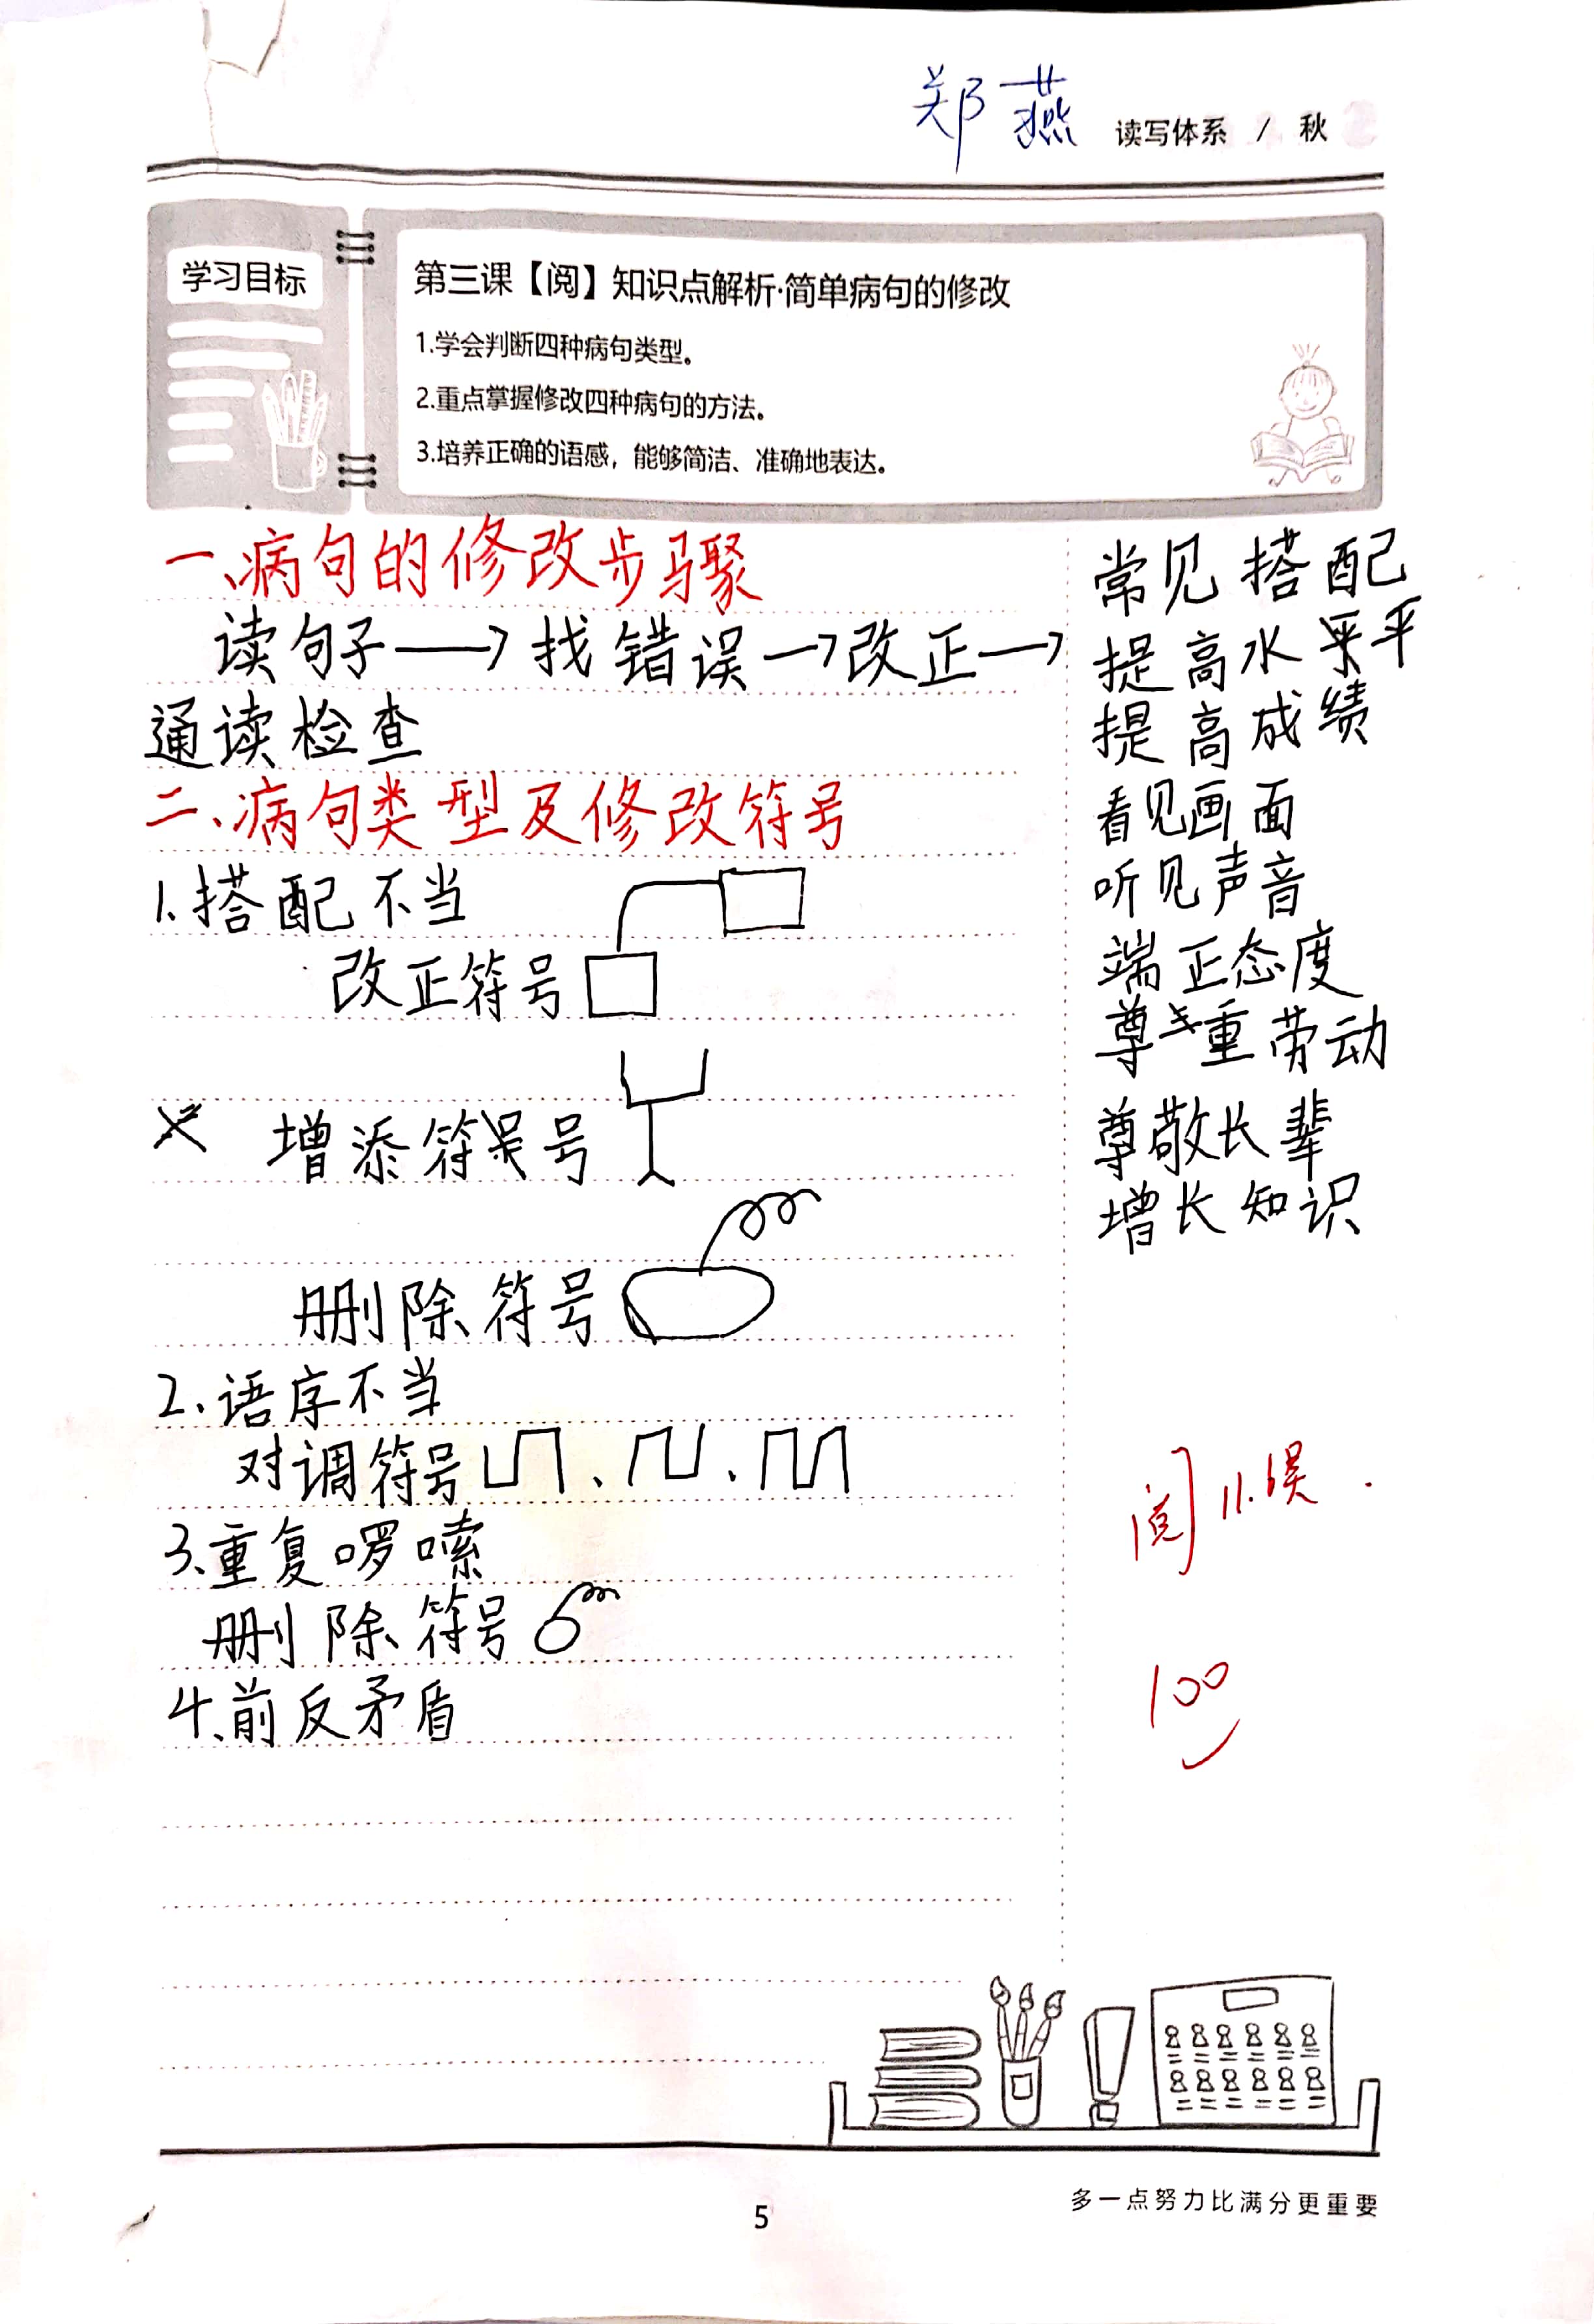 郑燕 读写体系 / 秋
学习目标
第三课【阅】知识点解析·简单病句的修改
1.学会判断四种病句类型。
2.重点掌握修改四种病句的方法。
3.培养正确的语感，能够简洁、准确地表达。
一、病句的修改步骤
读句子→找错误→改正→
通读检查
二、病句类型及修改符号
1.搭配不当
改正符号
增添符号
删除符号
2.语序不当
对调符号
3.重复啰嗦
删除符号
4.前反矛盾
常见搭配
提高水平
提高成绩
看见画面
听见声音
端正态度
尊重劳动
尊敬长辈
增长知识
阅 11.6
100
5
多一点努力比满分更重要